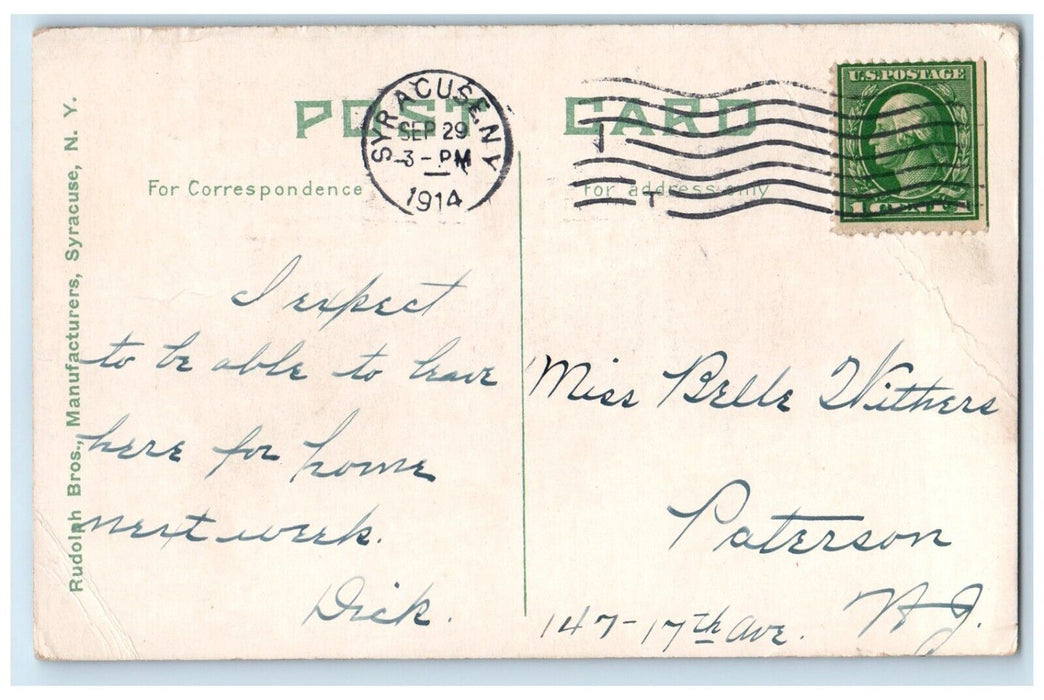 POST CARD
SYRACUSE, N.Y.
SEP 29
3-PM
1914
U.S. POSTAGE
1 CENT 1
For Correspondence
For address only
Rudolph Bros., Manufacturers, Syracuse, N. Y.
I expect
to be able to leave
here for home
next week.
Dick.
Miss Belle Withers
Paterson
N.J.
147-17th Ave.